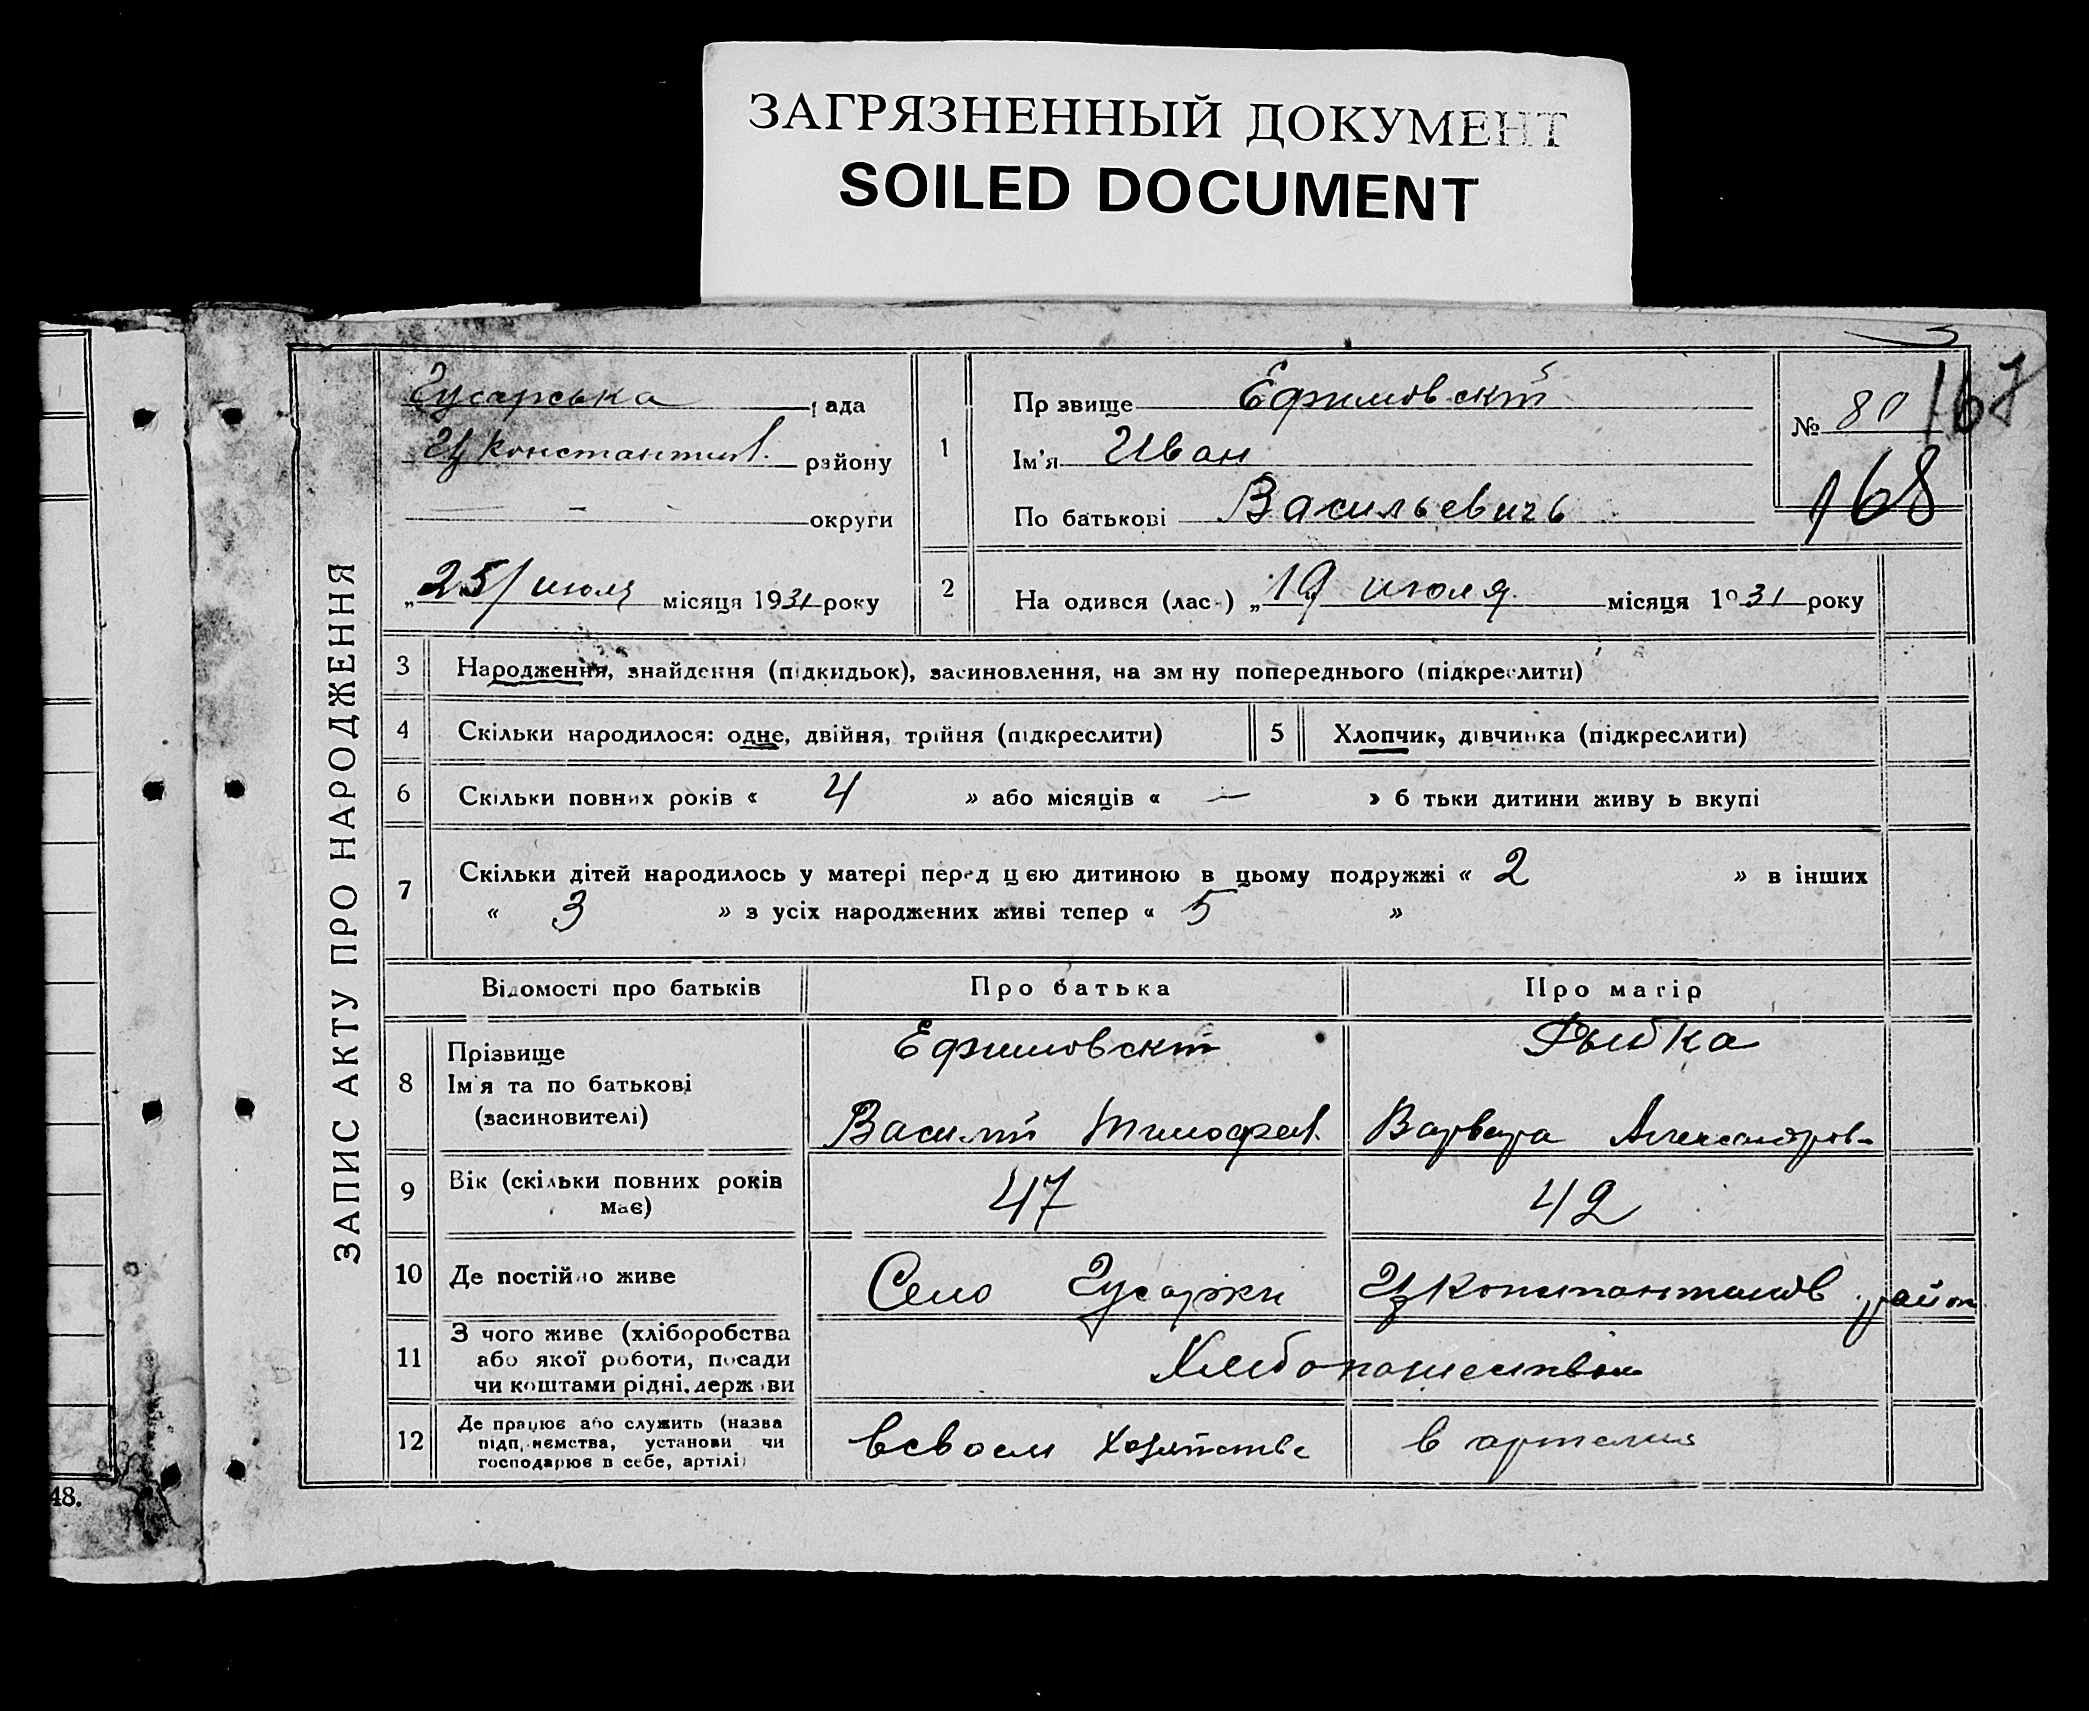 ЗАГРЯЗНЕННЫЙ ДОКУМЕНТ
SOILED DOCUMENT
ЗАПИС АКТУ ПРО НАРОДЖЕННЯ
Гусарська рада
Цконстантинов. району
округи
„25/ июля місяця 1931 року
1
Прізвище Ефимовский
Ім'я Иван
По батькові Васильевичь
№ 80
167
168
2 Народився (лась) „19 июля місяця 1931 року
3 Народження, знайдення (підкидьок), засиновлення, на зміну попереднього (підкреслити)
4 Скільки народилося: одне, двійня, трійня (підкреслити) 5 Хлопчик, дівчинка (підкреслити)
6 Скільки повних років « 4 » або місяців « — » батьки дитини живуть вкупі
7 Скільки дітей народилось у матері перед цею дитиною в цьому подружжі « 2 » в інших
« 3 » з усіх народжених живі тепер « 5 »
Відомості про батьків Про батька Про матір
8 Прізвище Ефимовский Рыбка
Ім'я та по батькові
(засиновителі) Василий Тимофеев. Варвара Александров
9 Вік (скільки повних років
має) 47 42
10 Де постійно живе Село Гусарки Цконстантинов район
11 З чого живе (хліборобства
або якої роботи, посади Хлебопашеством
чи коштами рідні, держави
12 Де працює або служить (назва
підприємства, установи чи всвоем хозяйстве в артелии
господарює в себе, артілі)
48.